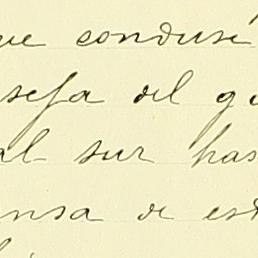 ue conduse
sefa del g
al sur has
nsa de est